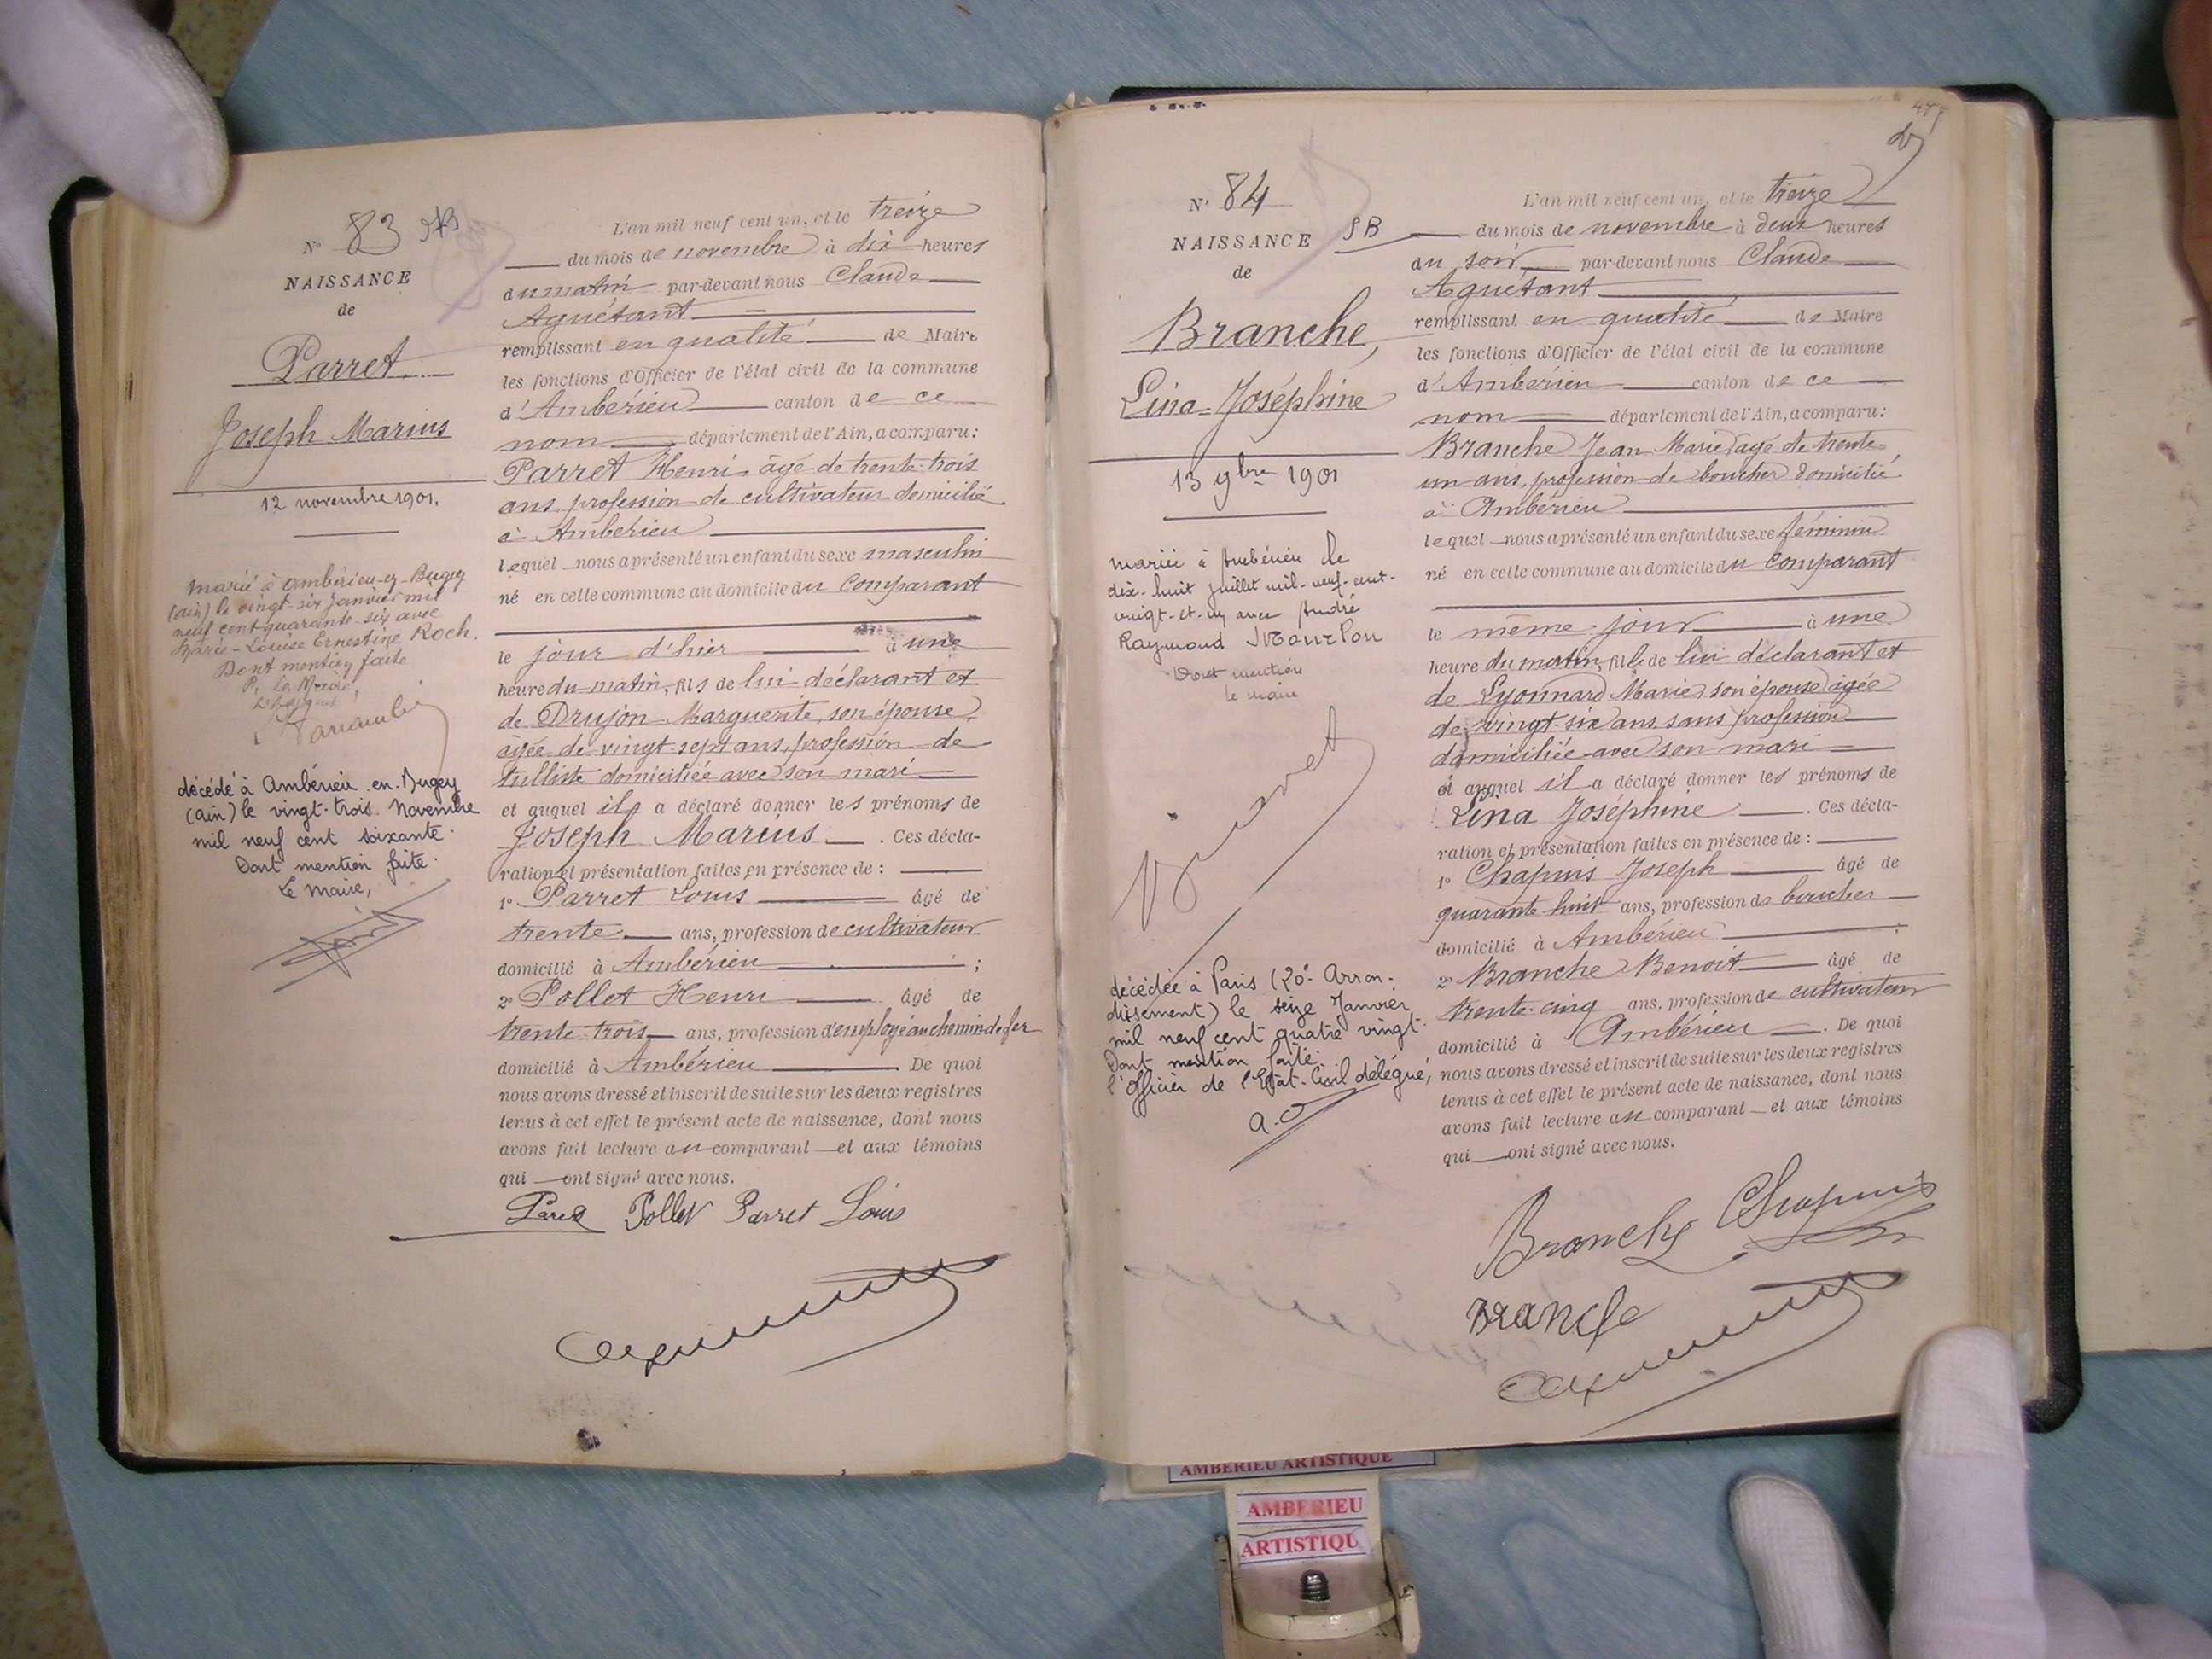 N° 83
NAISSANCE
de
Parret
Joseph Marius
12 novembre 1901.
marié à Ambérieu-en-Bugey
(ain) le vingt-six janvier mil
neuf cent quarante-six avec
Marie-Louise Ernestine Roch.
Dont mention faite
P. Le Maire,
décédé à Ambérieu-en-Bugey
(ain) le vingt-trois Novembre
mil neuf cent soixante.
Dont mention faite.
Le maire,
L'an mil neuf cent un, et le treize
du mois de novembre à dix heures
du matin par-devant nous Claude
Aguétant
remplissant en qualité de Maire
les fonctions d'Officier de l'état civil de la commune
d'Ambérieu canton de ce
nom département de l'Ain, a comparu:
Parret Henri âgé de trente-trois
ans, profession de cultivateur domicilié
à Ambérieu
lequel nous a présenté un enfant du sexe masculin
né en cette commune au domicile du comparant
le jour d'hier à une
heure du matin, fils de lui déclarant et
de Drujon Marguerite, son épouse,
âgée de vingt-sept ans, profession de
tulliste domiciliée avec son mari
et auquel il a déclaré donner les prénoms de
Joseph Marius. Ces décla-
ration et présentation faites en présence de :
1° Parret Louis âgé de
trente ans, profession de cultivateur
domicilié à Ambérieu ;
2° Pollet Henri âgé de
trente-trois ans, profession d'employé au chemin de fer
domicilié à Ambérieu De quoi
nous avons dressé et inscrit de suite sur les deux registres
tenus à cet effet le présent acte de naissance, dont nous
avons fait lecture au comparant et aux témoins
qui ont signé avec nous.
Parret Pollet Parret Louis
N° 84
NAISSANCE
de
SB
Branche,
Lina-Joséphine
13 9bre 1901
mariée à Ambérieu le
dix-huit juillet mil-neuf-cent-
vingt-et-un avec André
Raymond
Dont mention
le maire
décédée à Paris (20è Arron-
dissement) le seize Janvier
mil neuf cent quatre vingt.
Dont mention faite.
l'Officier de l'Etat-Civil délégué,
L'an mil neuf cent un, et le treize
du mois de novembre à deux heures
du soir par-devant nous Claude
Aguétant
remplissant en qualité de Maire
les fonctions d'Officier de l'état civil de la commune
d'Ambérieu canton de ce
nom département de l'Ain, a comparu:
Branche Jean Marie, âgé de trente-
un ans, profession de boucher domicilié
à Ambérieu
lequel nous a présenté un enfant du sexe féminin
né en cette commune au domicile du comparant
le même jour à une
heure du matin, fille de lui déclarant et
de Lyonnard Marie, son épouse âgée
de vingt-six ans sans profession
domiciliée avec son mari
et auquel il a déclaré donner les prénoms de
Lina Joséphine. Ces décla-
ration et présentation faites en présence de :
1° Chapuis Joseph âgé de
quarante-huit ans, profession de boucher
domicilié à Ambérieu ;
2° Branche Benoit âgé de
trente-cinq ans, profession de cultivateur
domicilié à Ambérieu. De quoi
nous avons dressé et inscrit de suite sur les deux registres
tenus à cet effet le présent acte de naissance, dont nous
avons fait lecture au comparant et aux témoins
qui ont signé avec nous.
Branche Chapuis
Branche
AMBERIEU ARTISTIQUE
AMBERIEU
ARTISTIQU